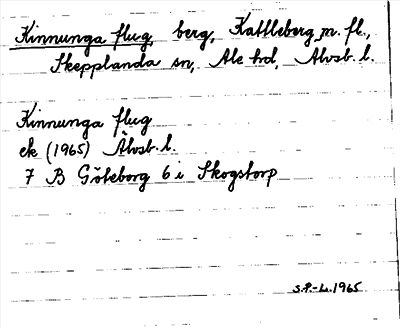 Kinnunga flug, berg, Kattleberg m. fl.,
Skepplanda sn, Ale hd, Älvsb. l.
Kinnunga flug
ek (1965) Älvsb. l.
7 B Göteborg 6 i Skogstorp
S.P.-L. 1965